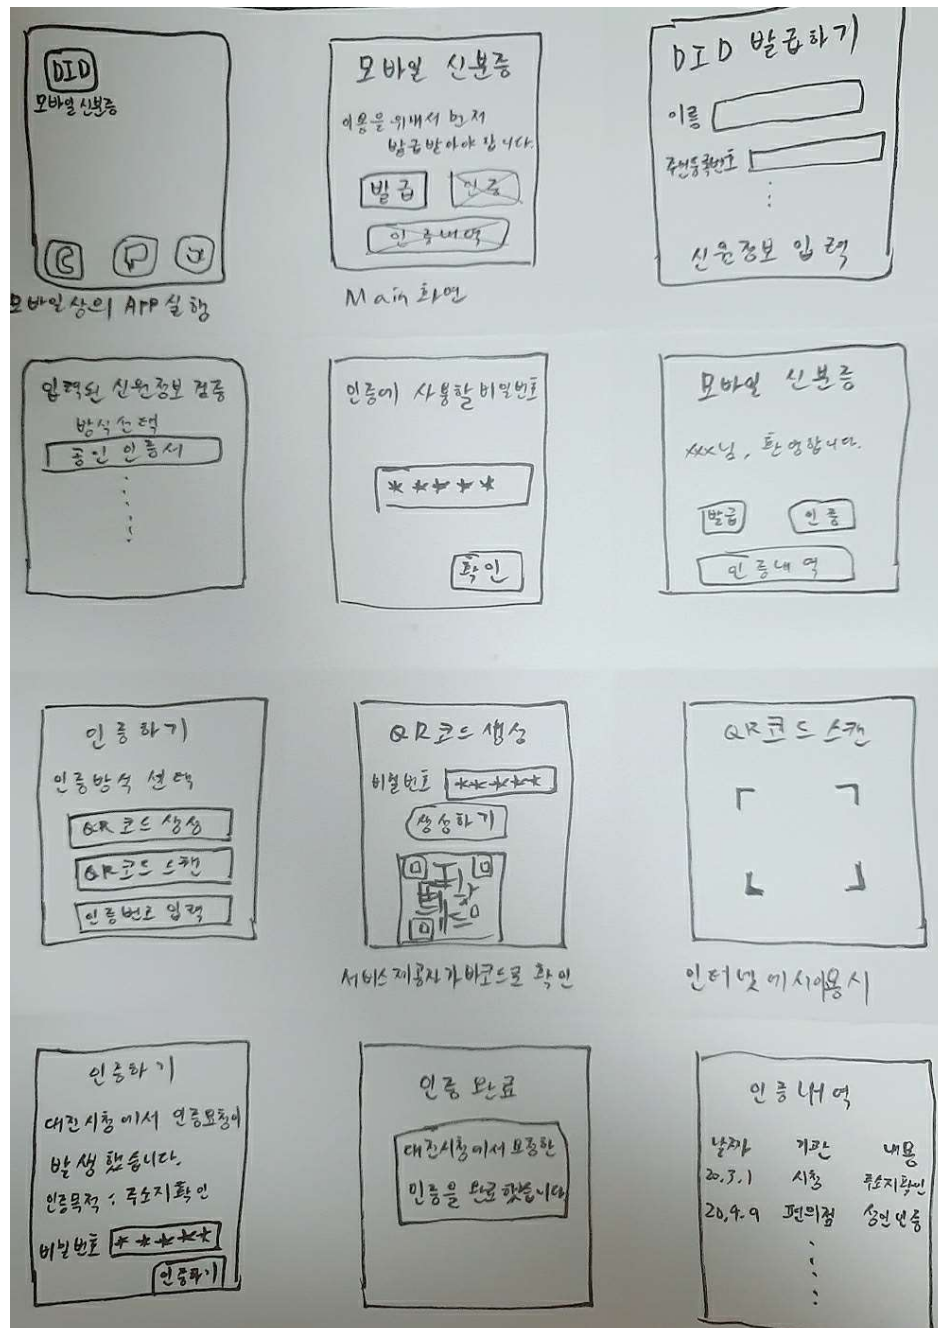 DID
모바일 신분증
모바일상의 APP 실행
모바일 신분증
이용을 위해서 먼저
발급받아야 합니다.
발급
인증
인증내역
Main 화면
DID 발급하기
이름
주민등록번호
신원정보 입력
입력된 신원정보 검증
방식선택
공인 인증서
인증에 사용할 비밀번호
*****
확인
모바일 신분증
xxx님, 환영합니다.
발급
인증
인증내역
인증하기
인증방식 선택
QR코드 생성
QR코드 스캔
인증번호 입력
QR코드 생성
비밀번호 *****
생성하기
서비스제공자가 바코드로 확인
QR코드 스캔
인터넷에서 이용시
인증하기
대전시청에서 인증요청이
발생했습니다.
인증목적 : 주소지확인
비밀번호 *****
인증하기
인증 완료
대전시청에서 요청한
인증을 완료했습니다
인증내역
날짜 기관 내용
20.3.1 시청 주소지확인
20.4.9 편의점 성인인증